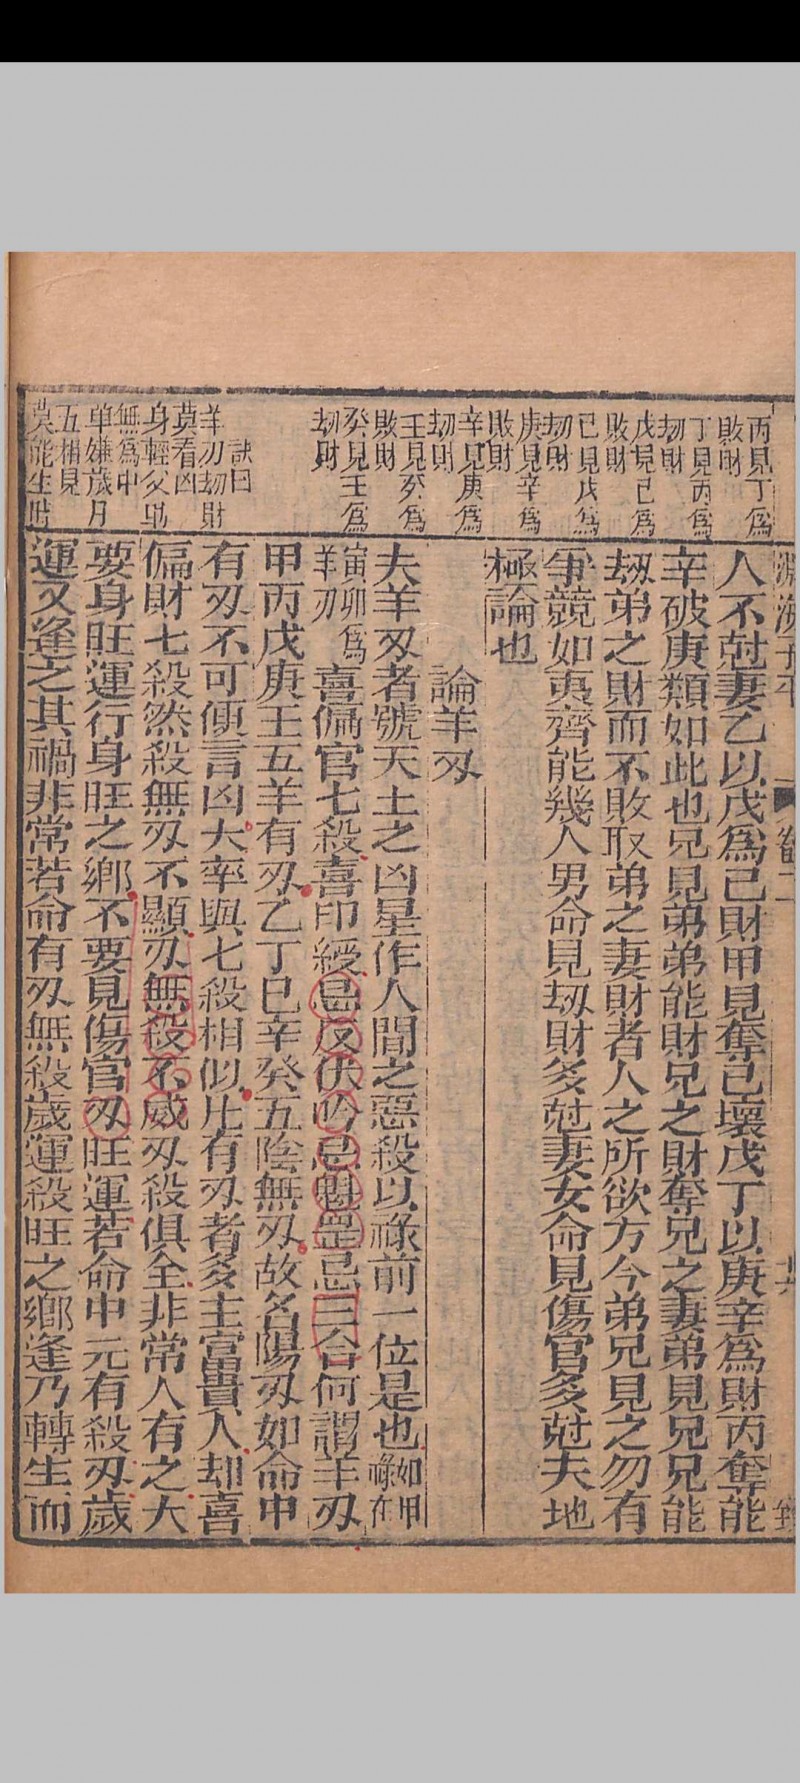 丙見丁爲
敗財
丁見丙爲
刼財
戊見己爲
敗財
己見戊爲
刼財
庚見辛爲
敗財
辛見庚爲
刼財
壬見癸爲
敗財
癸見壬爲
刼財
訣曰
羊刃刼財
莫看凶
身輕父
無爲中
单嫌歲月
五相見
莫能生
淵海子平
卷二
人不尅妻乙以戊爲己財甲見奪己壞戊丁以庚辛爲財丙奪能
辛破庚類如此也兄見弟弟能財兄之財奪兄之妻弟見兄兄能
刼弟之財而不敗取弟之妻財者人之所欲方今弟兄見之勿有
爭競如夷齊能幾人男命見刼財多尅妻女命見傷官多尅夫地
極論也
論羊刃
夫羊刃者號天土之凶星作人間之惡殺以祿前一位是也如甲祿在
寅卯爲羊刃喜偏官七殺喜印綬忌反伏吟忌魁罡忌三合何謂羊刃
甲丙戊庚壬五羊有刃乙丁巳辛癸五陰無刃故名陽刃如命中
有刃不可便言凶大率與七殺相似比有刃者多主富貴人却喜
偏財七殺然殺無刃不顯刃無殺不威刃殺俱全非常人有之大
要身旺運行身旺之鄉不要見傷官刃旺運若命中元有殺刃歲
運又逢之其禍非常若命有刃無殺歲運殺旺之鄉逢乃轉生而